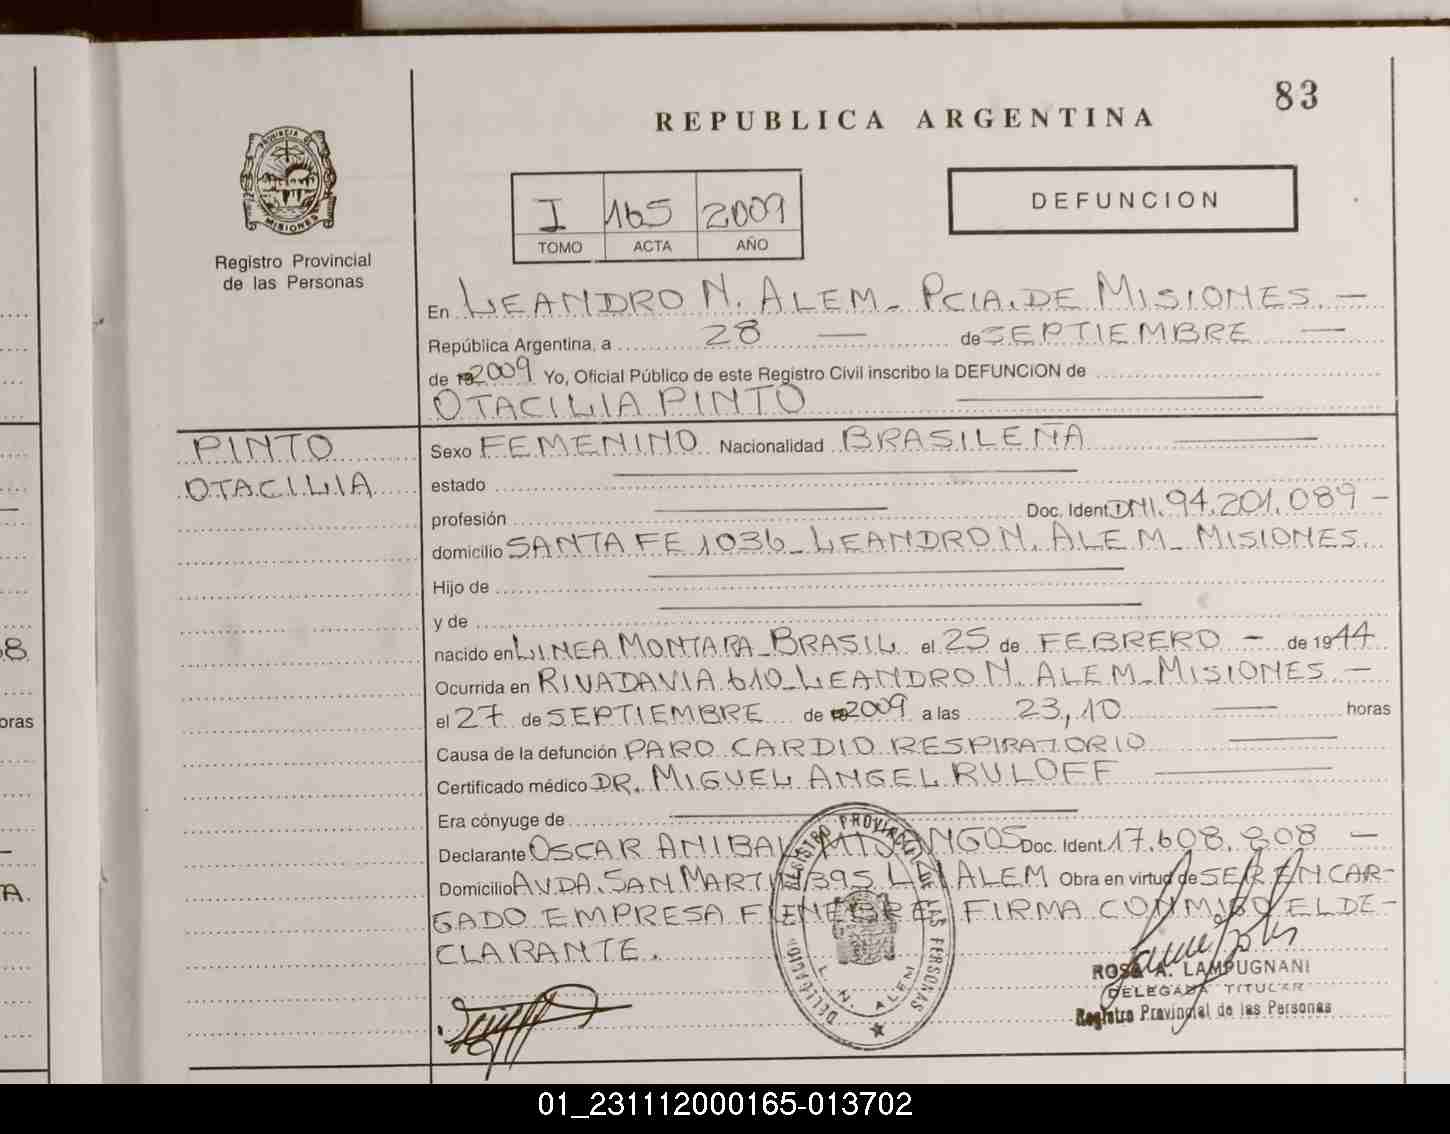 83
REPUBLICA ARGENTINA
PROVINCIA D
MISIONES
Registro Provincial
de las Personas
I 165 2009
TOMO ACTA AÑO
DEFUNCION
En LEANDRO N. ALEM_ PCIA. DE MISIONES. —
República Argentina, a 28 — de SEPTIEMBRE —
de 2009 Yo, Oficial Público de este Registro Civil inscribo la DEFUNCION de
OTACILIA PINTO
PINTO
OTACILIA
Sexo FEMENINO Nacionalidad BRASILEÑA
estado
profesión Doc. Ident. DNI. 94.201.089 —
domicilio SANTA FE 1036_ LEANDRO N. ALEM_ MISIONES.
Hijo de
y de
nacido en LINEA MONTARA_BRASIL el 25 de FEBRERO — de 1944
Ocurrida en RIVADAVIA 610_LEANDRO N. ALEM_MISIONES —
el 27 de SEPTIEMBRE de 2009 a las 23,10 horas
Causa de la defunción PARO CARDIO RESPIRATORIO
Certificado médico DR. MIGUEL ANGEL RULOFF
Era cónyuge de
Declarante OSCAR ANIBAL Doc. Ident. 17.608.808 —
Domicilio AVDA. SAN MARTIN 1395 L.N. ALEM Obra en virtud de SER ENCAR-
GADO EMPRESA FUNEBRE. FIRMA CONMIGO EL DE-
CLARANTE.
DELEGACION REGISTRO PROVINCIAL DE LAS PERSONAS
L. N. ALEM
ROSA A. LAMPUGNANI
DELEGADA TITULAR
Registro Provincial de las Personas
68
oras
TA.
01_231112000165-013702